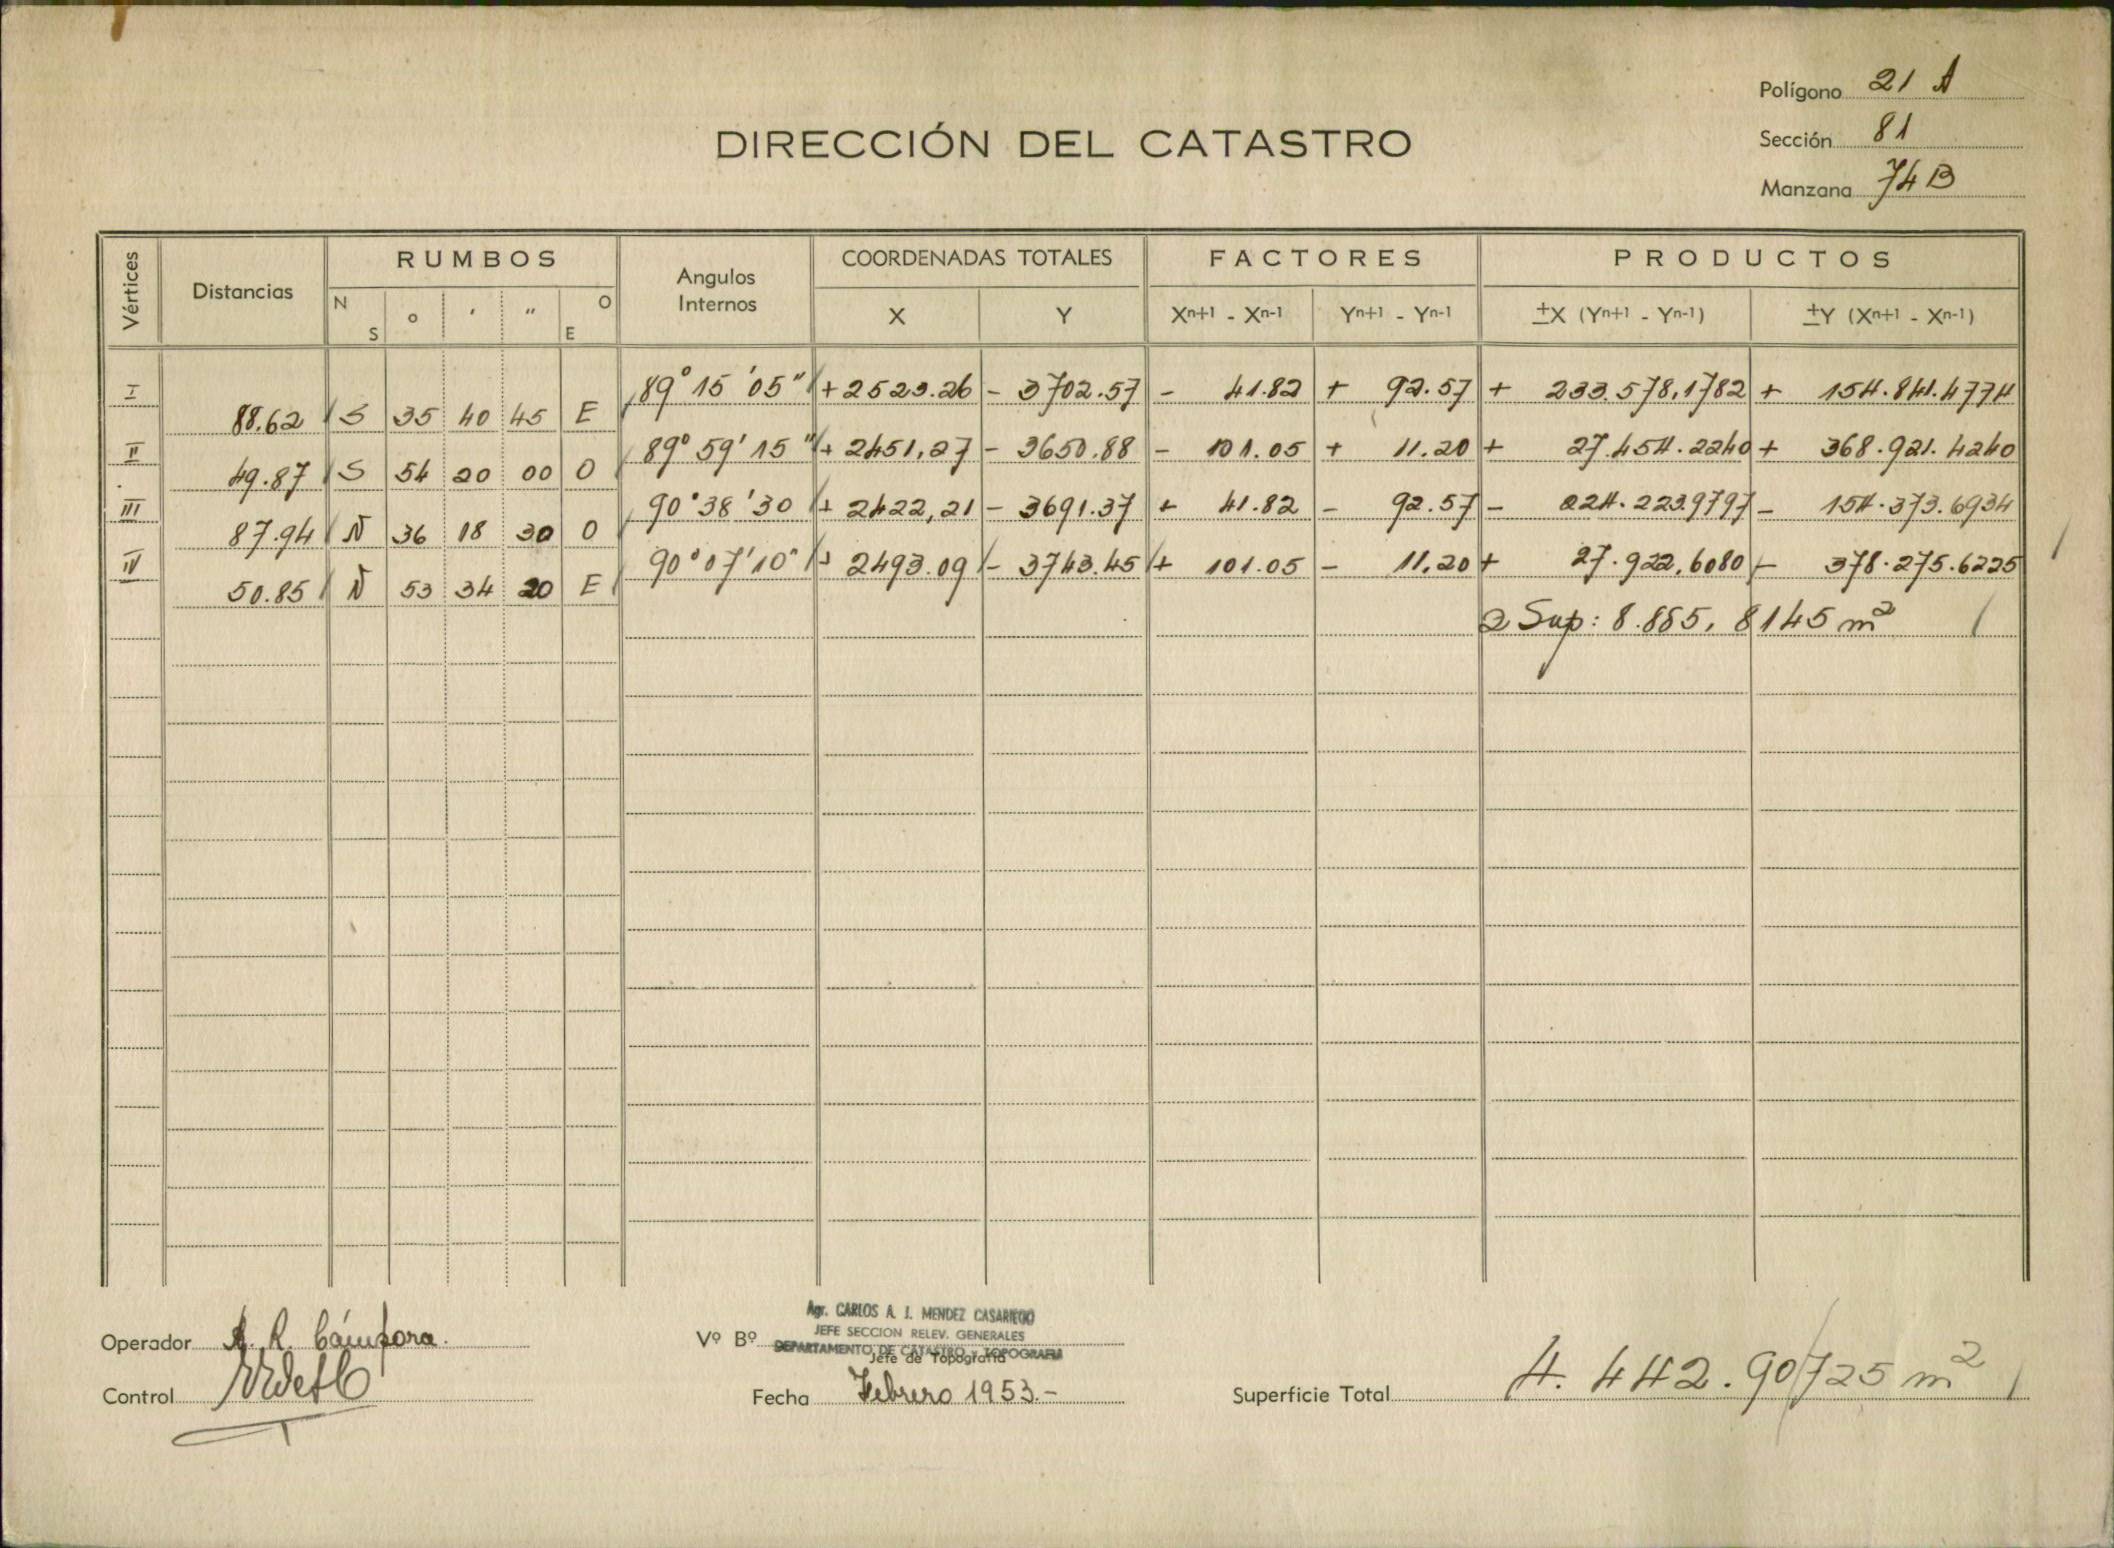 Polígono 21 A
DIRECCIÓN DEL CATASTRO
Sección 81
Manzana 74 B
Vértices Distancias RUMBOS Angulos Internos COORDENADAS TOTALES FACTORES PRODUCTOS
N S ° ' " O E X Y Xn+1 - Xn-1 Yn+1 - Yn-1 ±X (Yn+1 - Yn-1) ±Y (Xn+1 - Xn-1)
I 89° 15' 05" + 2523.26 - 3702.57 - 41.82 + 92.57 + 233.578,1782 + 154.841.4774
88.62 S 35 40 45 E
II 89° 59' 15" + 2451,27 - 3650.88 - 101.05 + 11.20 + 27.454.2240 + 368.921.4240
49.87 S 54 20 00 O
III 90° 38' 30 + 2422,21 - 3691.37 + 41.82 - 92.57 - 224.223.9797 - 154.373.6934
87.94 N 36 18 30 O
IV 90° 07' 10" + 2493.09 - 3743.45 + 101.05 - 11.20 + 27.922,6080 - 378.275.6225
50.85 N 53 34 20 E
2 Sup: 8.885, 8145 m²
Agr. CARLOS A. J. MENDEZ CASARIEGO
JEFE SECCION RELEV. GENERALES
DEPARTAMENTO DE CATASTRO y TOPOGRAFIA
Operador A. R. Cámpora.
Vº Bº
Jefe de Topografía
Control
Fecha Febrero 1953.-
Superficie Total 4.442.90725 m²